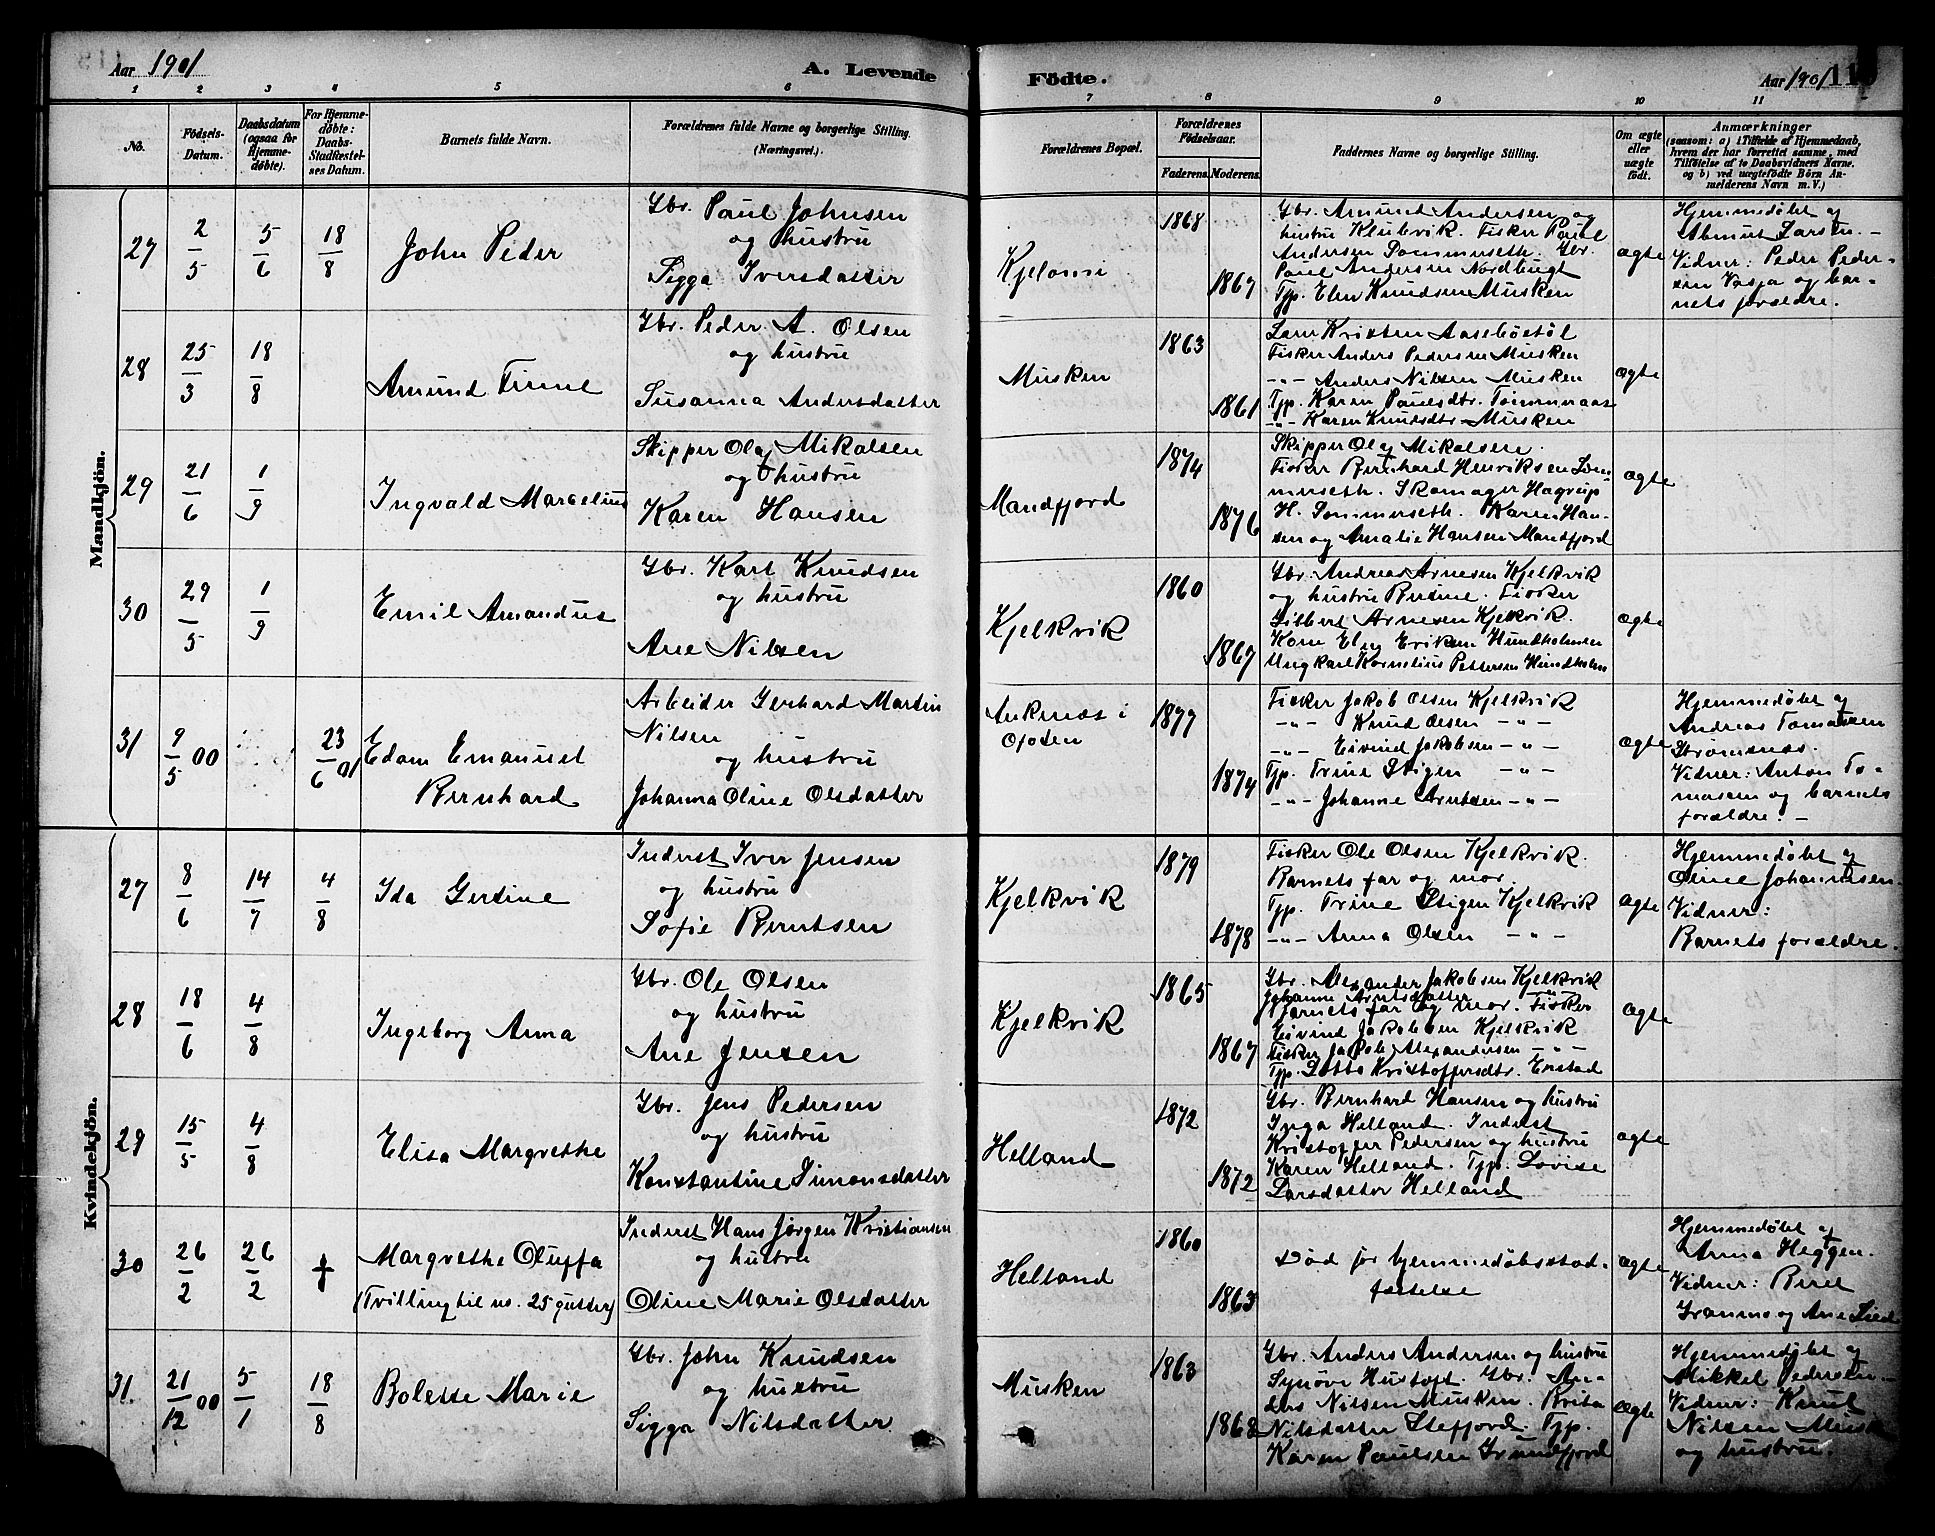 Aar 1901
A. Levende
Födte.
Aar 1901
1 2 3 4 5 6 7 8 9 10 11
No.
Födsels-Datum.
Daabsdatum (ogsaa for Hjemmedöbte).
For Hjemmedöbte: Daabs-Stadfæstelses Datum.
Barnets fulde Navn.
Forældrenes fulde Navne og borgerlige Stilling. (Næringsvei.)
Forældrenes Bopæl.
Forældrenes Födselsaar.
Faderens. Moderens.
Faddernes Navne og borgerlige Stilling.
Om ægte eller uægte födt.
Anmærkninger
(saasom: a) i Tilfælde af Hjemmedaab,
hvem der har forrettet samme, med
Tilföielse af to Daabsvidners Navne.
og b) ved uægtefödte Börn Anmelderens Navn m. V.)
Mandkjön.
27
2/5
5/6
18/8
John Peder
Gbr. Paul Johnsen
og hustru
Sigga Iversdatter
1868
1867
Gbr. Amund Andersen og
hustru Klubvik. Fisker Paul
Andersen Sommerseth. Gbr.
Paul Andersen Nordbugt
Tjp. Elen Knudsen Musken
ægte
Hjemmedøbt af
Abmut Larsen. -
Vidner: Peder Peder-
sen Vasja og bar-
nets forældre.
28
25/3
18/8
Amund Finne
Gbr. Peder A. Olsen
og hustru
Susanna Andersdatter
Musken
1863
1861
Fisker Anders Pedersen Musken
-"- Anders Nilsen Musken
Tjp. Karen Paulsdtr. Tømmeraas
-"- Karen Knutsdtr Musken
ægte
29
21/6
1/9
Ingvald Marcelius
Skipper Olaf Mikalsen
og hustru
Karen Hansen
Mandfjord
1874
1876
Skipper Olaf Mikalsen.
Fisker Bernhard Henriksen Som-
merseth. Skomager Hagrup
H. Sommerseth. Karen Han-
sen og Amalie Hansen Mandfjord
ægte
30
29/5
1/9
Emil Amandus
Gbr. Karl Knudsen
og hustru
Ane Nilsen
Kjelkvik
1860
1867
Gbr. Andreas Arnesen Kjelkvik
og hustru Bertine. Fisker
Arnesen Kjelkvik.
Kone Eriksen Hundholmen
Ungkarl Kornelius Pettersen Hundholm
ægte
31
9/5 00
23/6 01
Edom Emanuel
Bernhard
Arbeider Gerhard Martin
Nilsen
og hustru
Johanna Oline Olsdatter
Ankenæs i
Ofoten
1877
1874
Fisker Jakob Olsen Kjelkvik
-"- Knud Olsen -"-
-"- Eivind Jakobsen -"-
Tjp. Trine Stigen -"-
-"- Johanne Arntsen -"-
ægte
Hjemmedøbt af
Andreas Tomassen
Strømsnæs.
Vidner: Anton To-
masen og barnets
forældre. -
Kvindekjön.
27
8/6
14/7
4/8
Ida Gertine
Inderst Iver Jensen
og hustru
Sofie Berntsen
Kjelkvik
1879
1878
Fisker Ole Olsen Kjelkvik.
Barnets far og mor.
Tjp. Trine Stigen Kjelkvik
-"- Anna Olsen -"-
ægte
Hjemmedøbt af
Oline Johannesen.
Vidner:
Barnets forældre.
28
18/6
4/8
Ingeborg Anna
Gbr. Ole Olsen
og hustru
Ane Jensen
Kjelkvik
1865
1867
Gbr. Alexander Jakobsen Kjelkvik
Johanne Arntsdatter -"-
Barnets far og mor. Fisker
Eivind Jakobsen Kjelkvik
Fisker Jakob Alexandersen -"-
Tjp. Lotte Kristoffersdtr. Erstad
ægte
29
15/5
4/8
Elisa Margrethe
Gbr. Jens Pedersen
og hustru
Konstantine Simonsdatter
Helland
1872
1872
Gbr. Bernhard Hansen og hustru
Inga Helland. Inderst
Kristoffer Pedersen og hustru
Karen Helland. Tjp. Lovise
Larsdatter Helland
ægte
30
26/2
26/2
†
Margrethe Oluffa
(Tvilling til no. 25 gutter)
Inderst Hans Jørgen Kristiansen
og hustru
Oline Marie Olsdatter
Helland
1860
1863
Død før hjemmedøbsstad-
fæstelse
ægte
Hjemmedøbt af
Anna Heggen.
Vidner: Berel
Gramme og Ane Lied
31.
21/12 00
5/1
18/8
Bolette Marie
Gbr. John Knudsen
og hustru
Sigga Nilsdatter
Musken
1863
1868
Gbr. Anders Andersen og hustru
Synøve Hustoft. Gbr. An-
ders Nilsen Musken. Brita
Nilsdatter Stefjord. Tjp.
Karen Paulsen Grundfjord
ægte
Hjemmedøbt af
Mikkel Pedersen. -
Vidner: Knut
Nilsen Musk
og hustru.